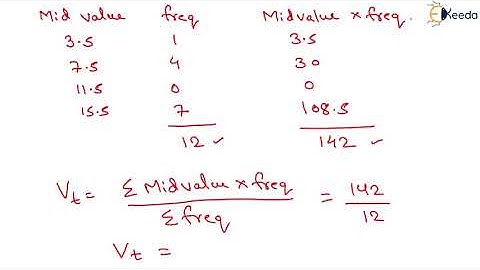 Ekeeda
Mid value freq Midvalue x freq.
3.5 1 3.5
7.5 4 30
11.5 0 0
15.5 7 108.5
12 ✓ 142 ✓
Vt = Σ Midvalue x freq / Σ freq = 142 / 12
Vt =